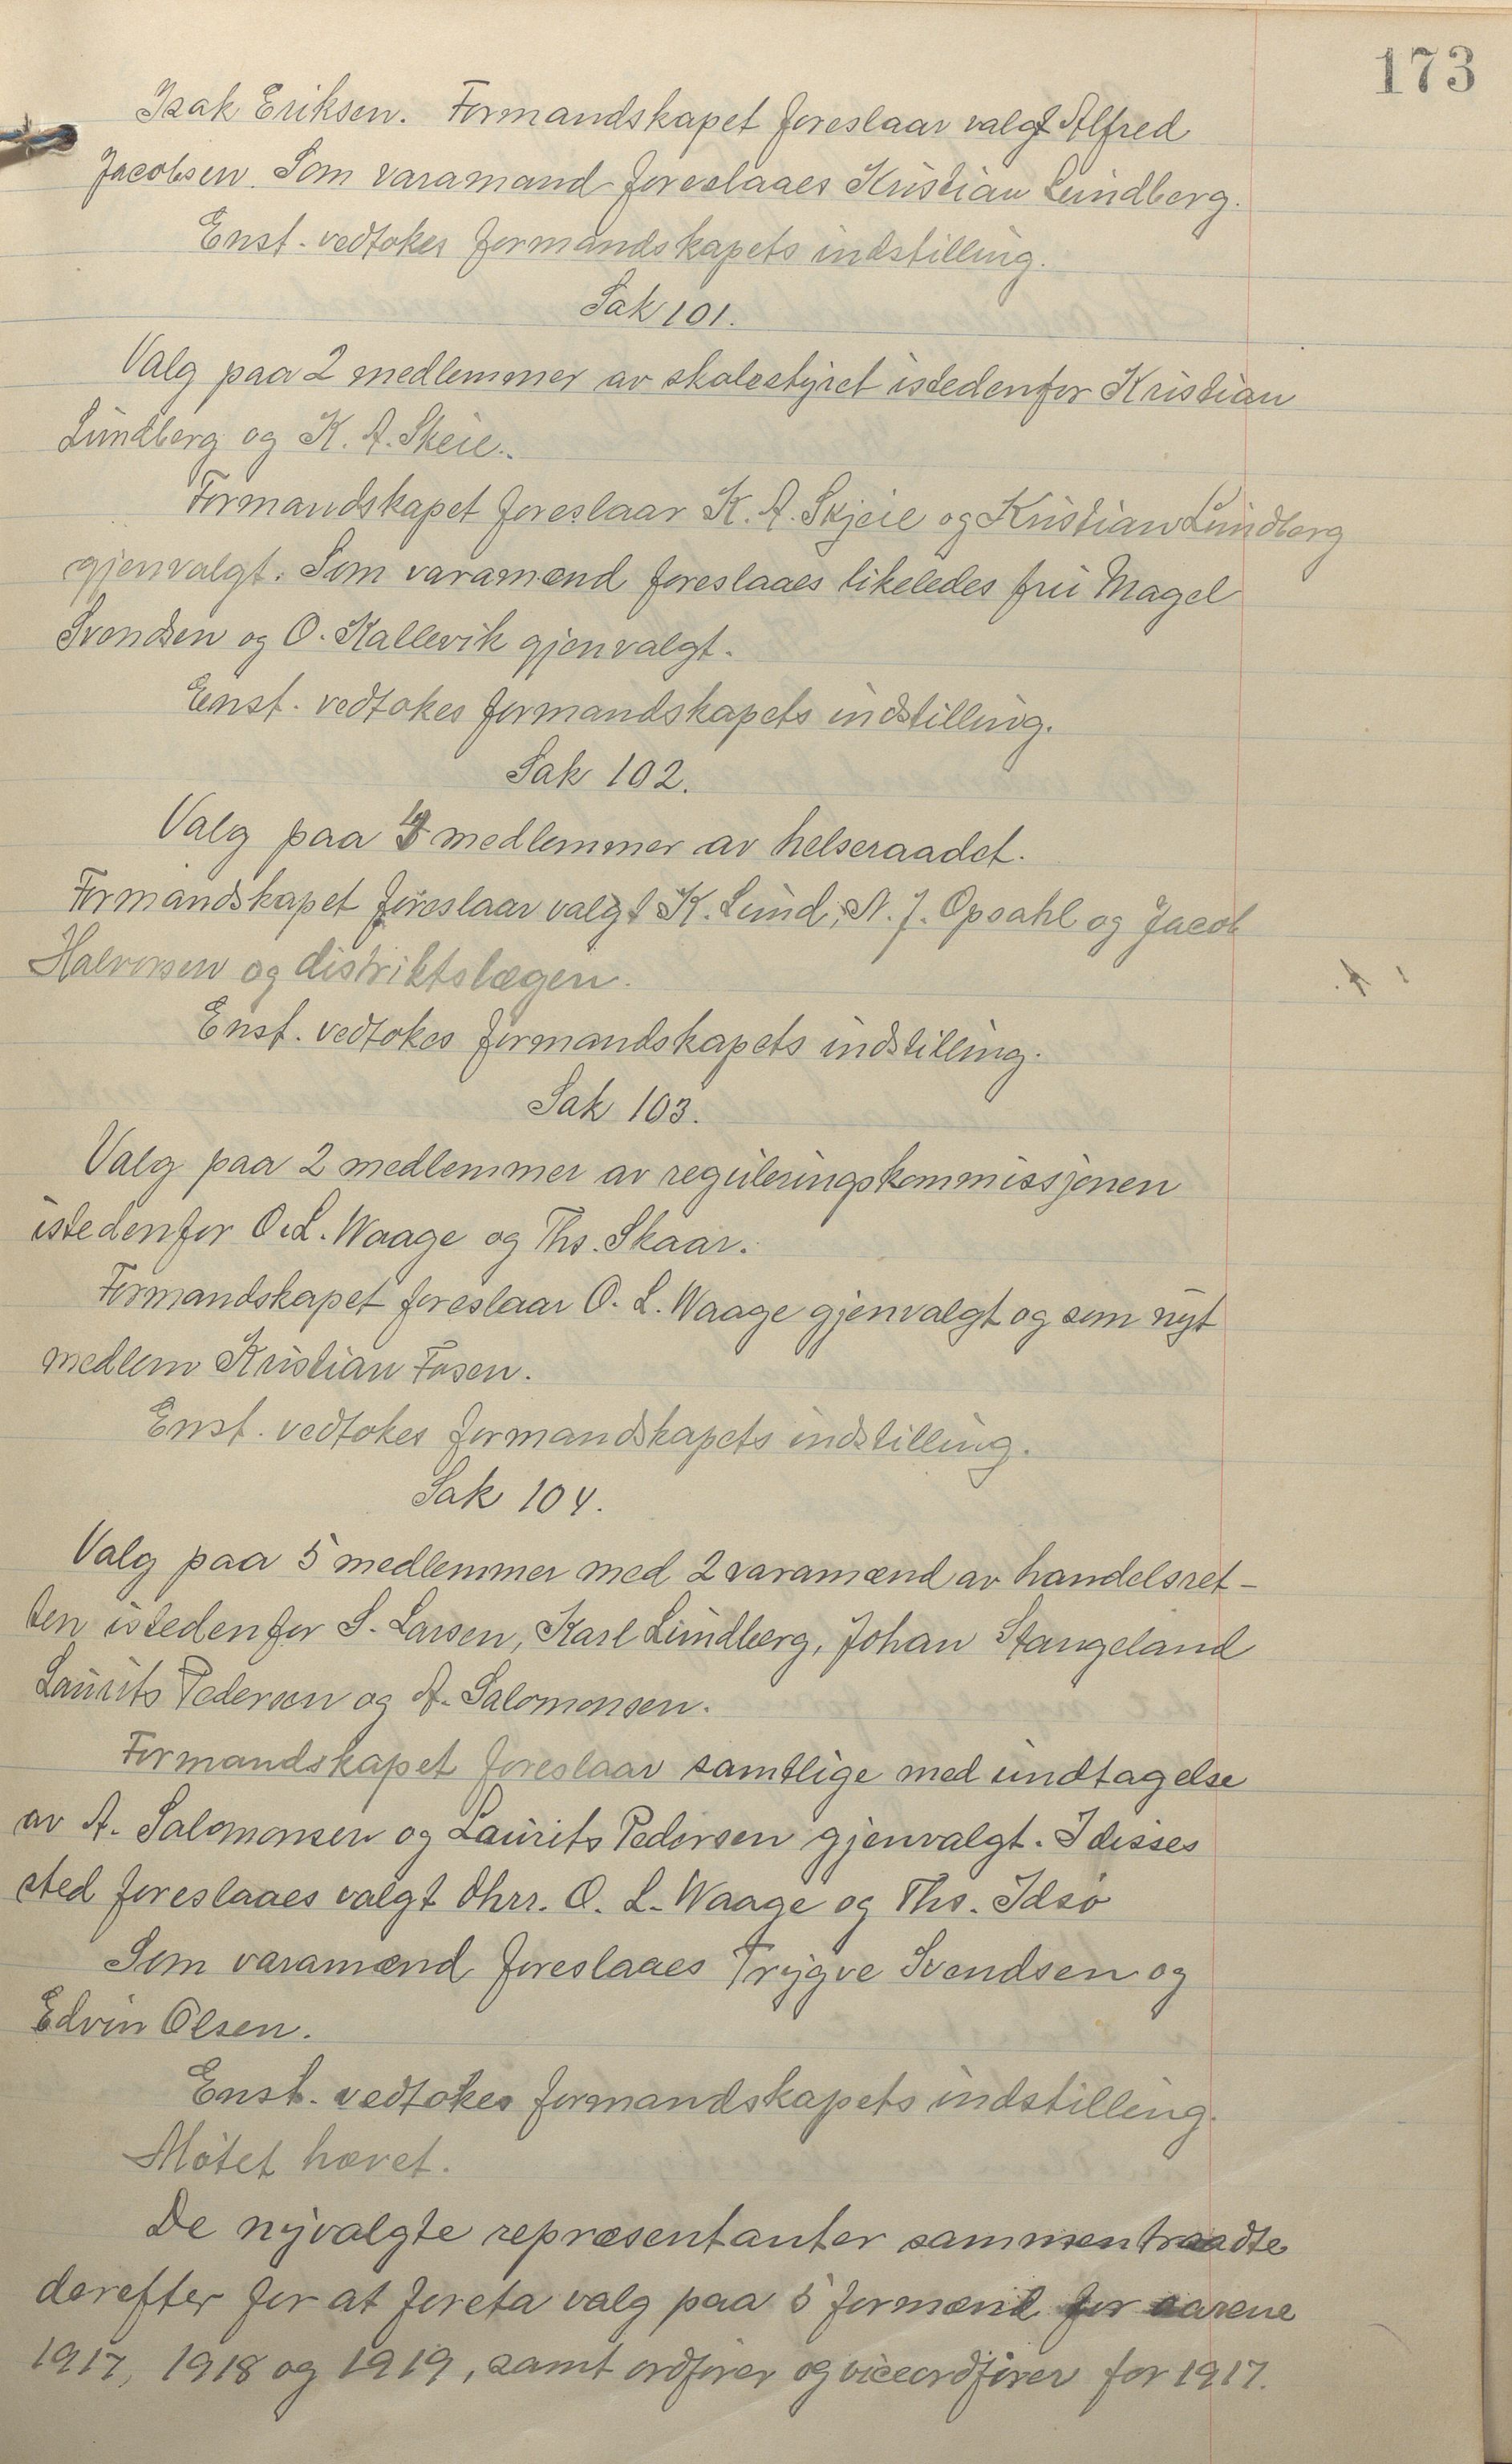 173
Isak Eriksen. Formandskapet foreslaar valgt Alfred
Jacobsen. Som varamand foreslaaes Kristian Lundberg.
Enst. vedtokes formandskapets indstilling.
Sak 101.
Valg paa 2 medlemmer av skolestyret istedenfor Kristian
Lundberg og K. A. Skeie.
Formandskapet foreslaar K. A. Skjeie og Kristian Lundberg
gjenvalgt. Som varamænd foreslaaes likeledes fru Magel
Svendsen og O. Kallevik gjenvalgt.
Enst. vedtokes formandskapets indstilling.
Sak 102.
Valg paa 4 medlemmer av helseraadet.
Formandskapet foreslaar valgt K. Lund, N. J. Opsahl og Jacob
Halvorsen og distriktslægen.
Enst. vedtokes formandskapets indstilling.
Sak 103.
Valg paa 2 medlemmer av reguleringskommissjonen
istedenfor O. L. Waage og Ths. Skaar.
Formandskapet foreslaar O. L. Waage gjenvalgt og som nyt
medlem Kristian Fosen.
Enst. vedtokes formandskapets indstilling.
Sak 104.
Valg paa 5 medlemmer med 2 varamænd av handelsret-
ten istedenfor S. Larsen, Karl Lundberg, Johan Stangeland
Laurits Pedersen og A. Salomonsen.
Formandskapet foreslaar samtlige med undtagelse
av A. Salomonsen og Laurits Pedersen gjenvalgt. I disses
sted foreslaaes valgt dhrr. O. L. Waage og Ths. Idsø
Som varamænd foreslaaes Trygve Svendsen og
Edvin Olsen.
Enst. vedtokes formandskapets indstilling.
Møtet hævet.
De nyvalgte repræsentanter sammentraadte
derefter for at foreta valg paa 5 formænd for aarene
1917, 1918 og 1919, samt ordfører og viceordfører for 1917.